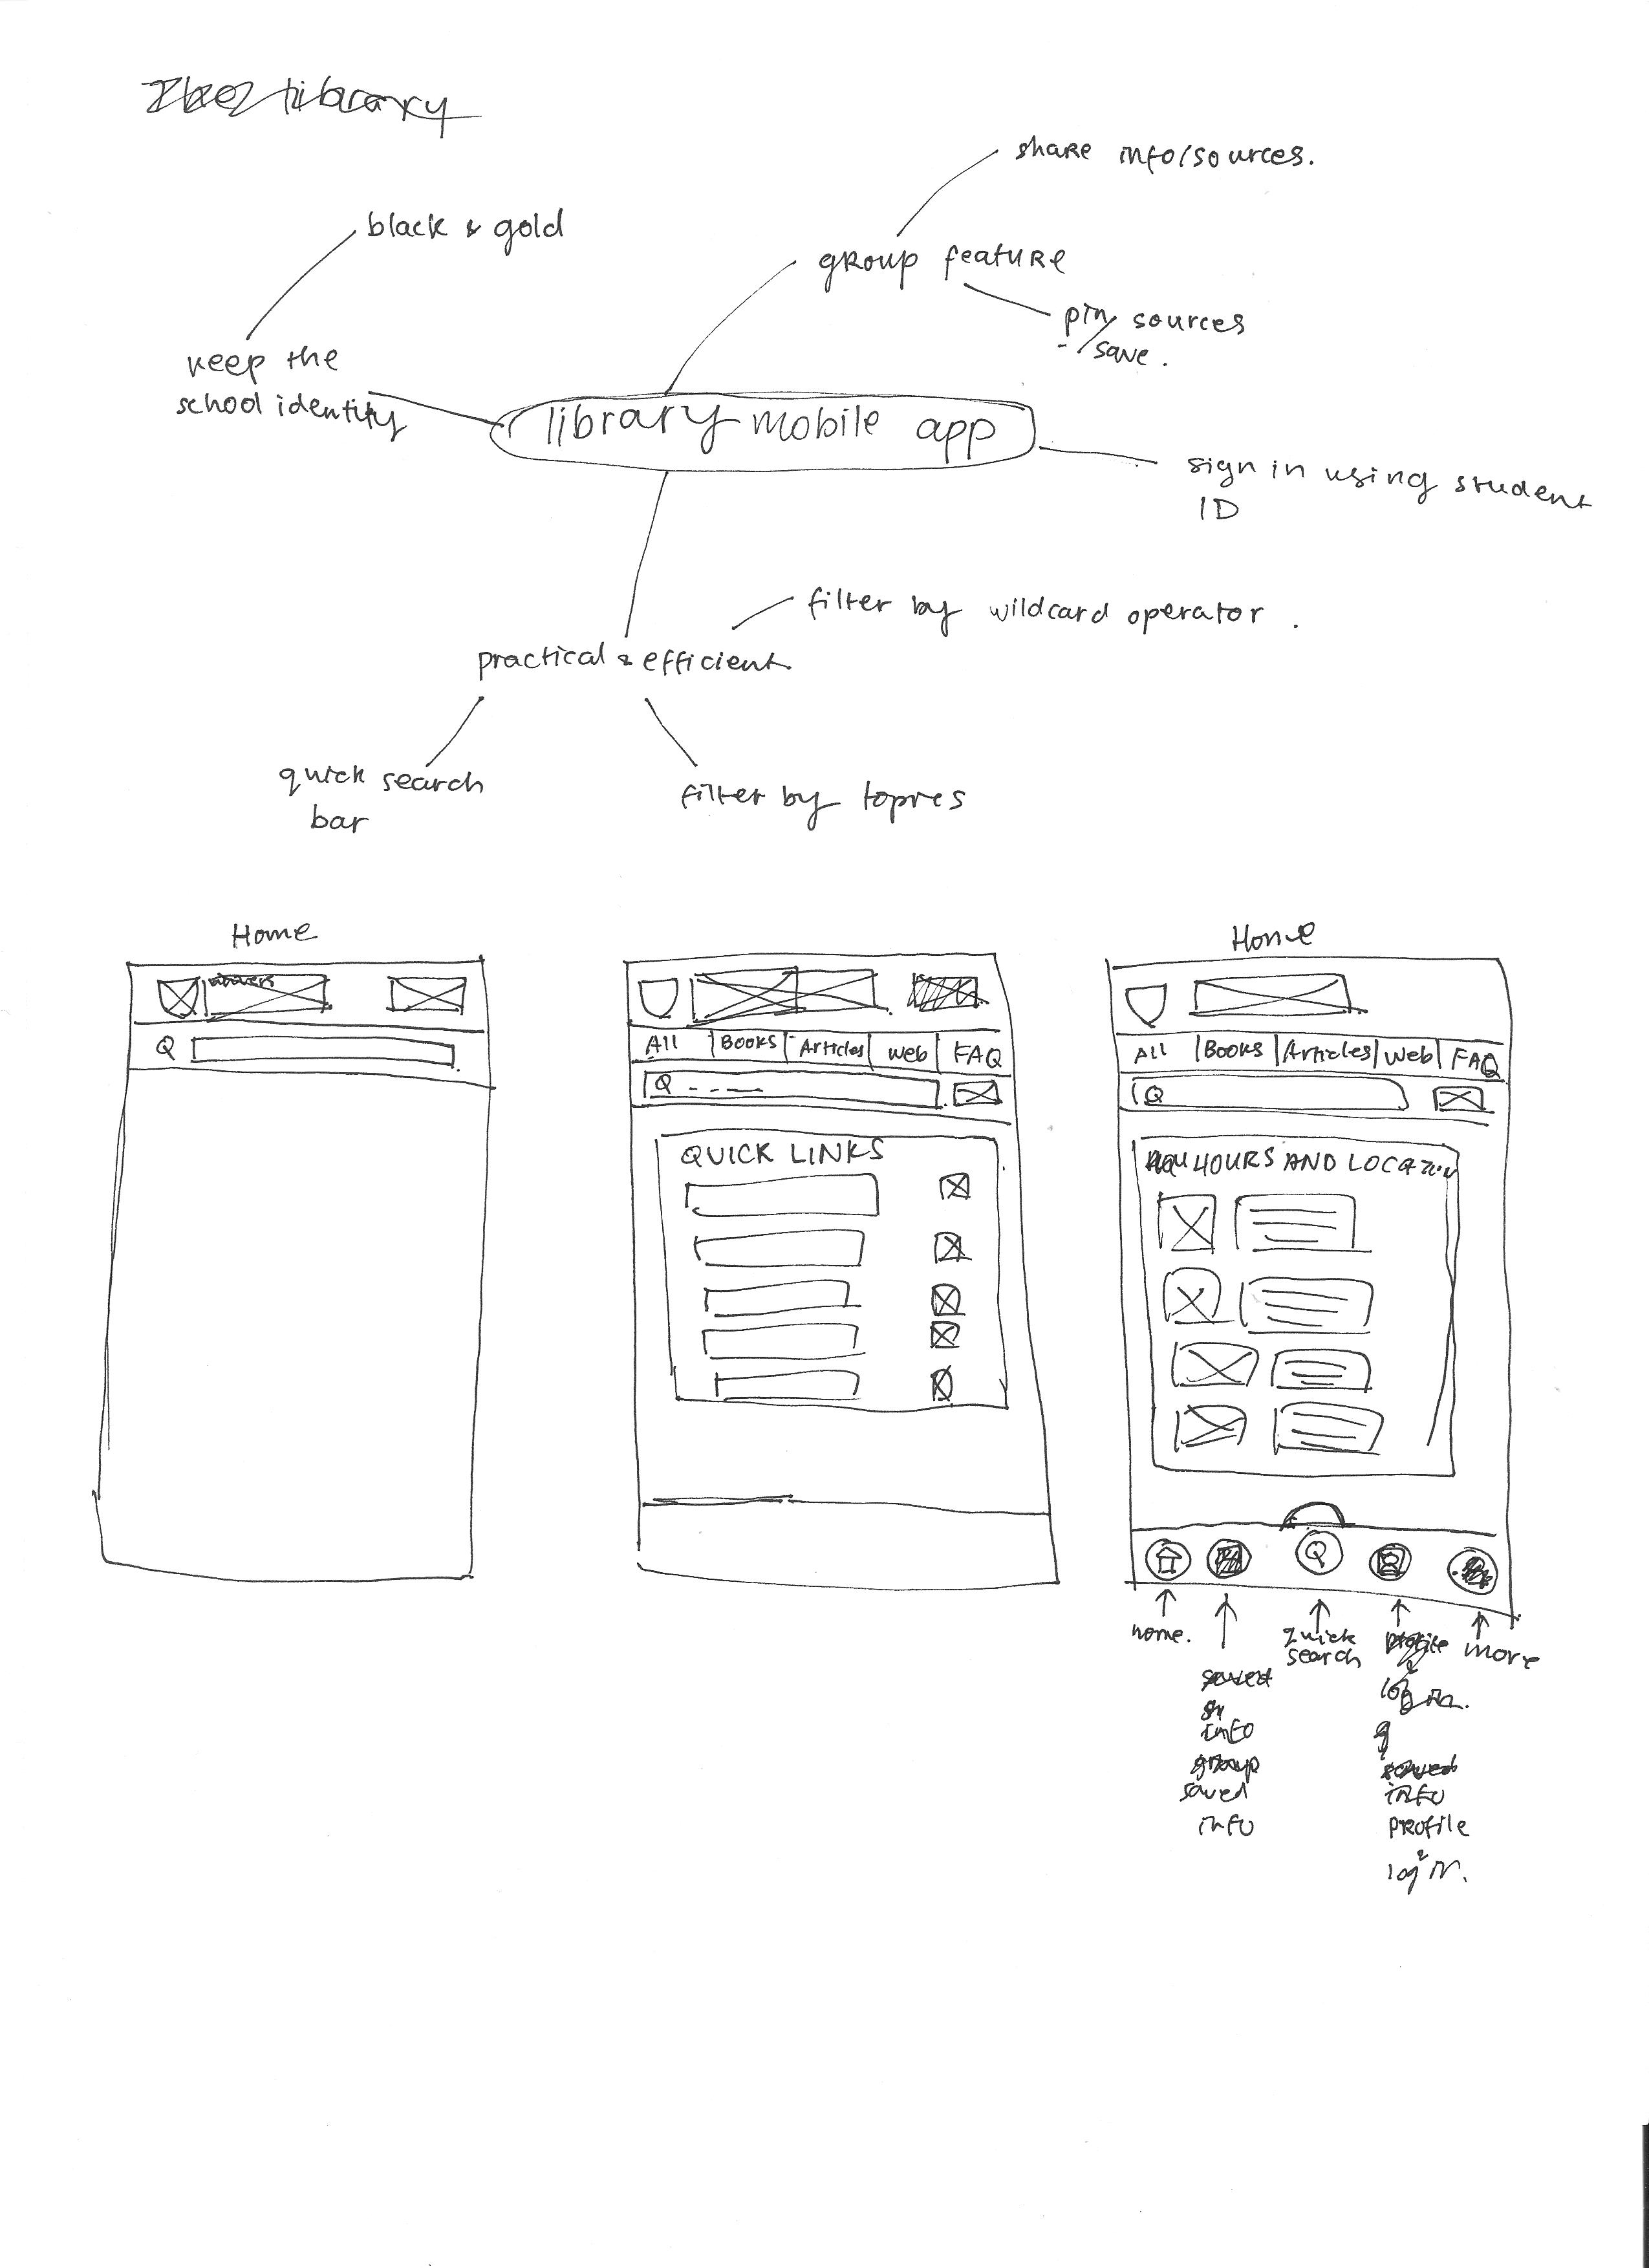 library
share info/sources.
black & gold
group feature
pin sources
/save.
keep the
school identity
library mobile app
sign in using student
ID
filter by wildcard operator.
practical & efficient
quick search
bar
filter by topics
Home
Q
All | Books | Articles | Web | FAQ
Q
QUICK LINKS
Home
All | Books | Articles | Web | FAQ
Q
HOURS AND LOCATION
Q
home.
quick
search
profile
more
saved
info
group
saved
info
log in.
saved
info
profile
& log in.